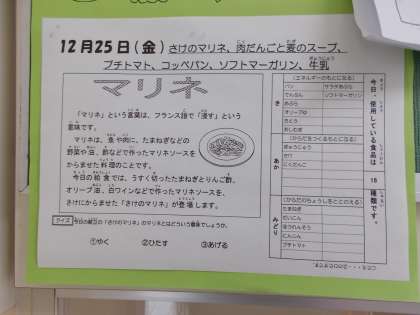 12月25日(金) さけのマリネ、肉だんごと麦のスープ、
プチトマト、コッペパン、ソフトマーガリン、牛乳
マリネ
「マリネ」という言葉は、フランス語で「浸す」という
意味です。
マリネは、魚や肉に、たまねぎなどの
野菜や油、酢などで作ったマリネソースを
からませた料理のことです。
今日の給食では、うすく切ったたまねぎとりんご酢、
オリーブ油、白ワインなどで作ったマリネソースを、
さけにからませた「さけのマリネ」が登場します。
クイズ 今日の献立の「さけのマリネ」のマリネとはどういう意味でしょうか。
①やく ②ひたす ③あげる
今日、使用している食品は 18 種類です。
き
(エネルギーのもとになる)
パン サラダあぶら
でんぷん ソフトマーガリン
あぶら
オリーブゆ
さとう
おしむぎ
あか
(からだをつくるもとになる)
ぎゅうにゅう
さけ
にくだんご
みどり
(からだのちょうしをととのえる)
たまねぎ
だいこん
ほうれんそう
にんじん
プチトマト